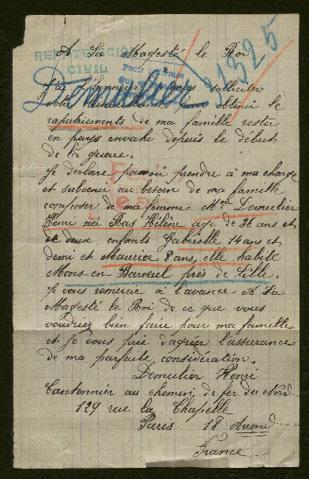 A Sa Majesté le Roi
REGISTRE
CIVIL
Demulier
31325
J'ai l'honneur de vous solliciter
obtenir le
rapatriements de ma famille restée
en pays envahi depuis le début
de la guerre.
Je déclare pouvoir prendre à ma charge
et subvenir au besoin de ma famille
composer de ma femme Mme Demulier
Henri née Bas Hélène âgé de 36 ans et
de deux enfants Gabrielle 14 ans et
demi et Maurice 8 ans, elle habite
Mons-en-Baroeul près de Lille.
Je vous remercie à l'avance A Sa
Majesté le Roi de ce que vous
voudriez bien faire pour ma famille
et je vous prie d'agréer l'assurance
de ma parfaite considération.
Demulier Henri
Cantonnier au chemin de fer du Nord
129 rue la Chapelle
Paris 18 Arrond
France